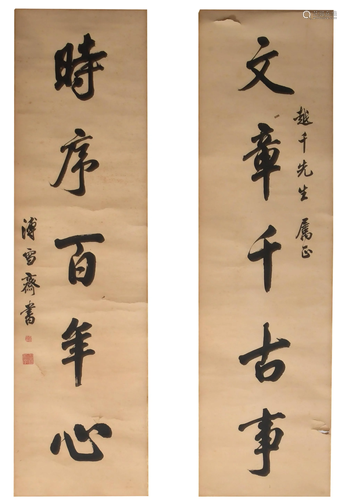 文章千古事
越千先生 属正
時序百年心
溥雪齋書